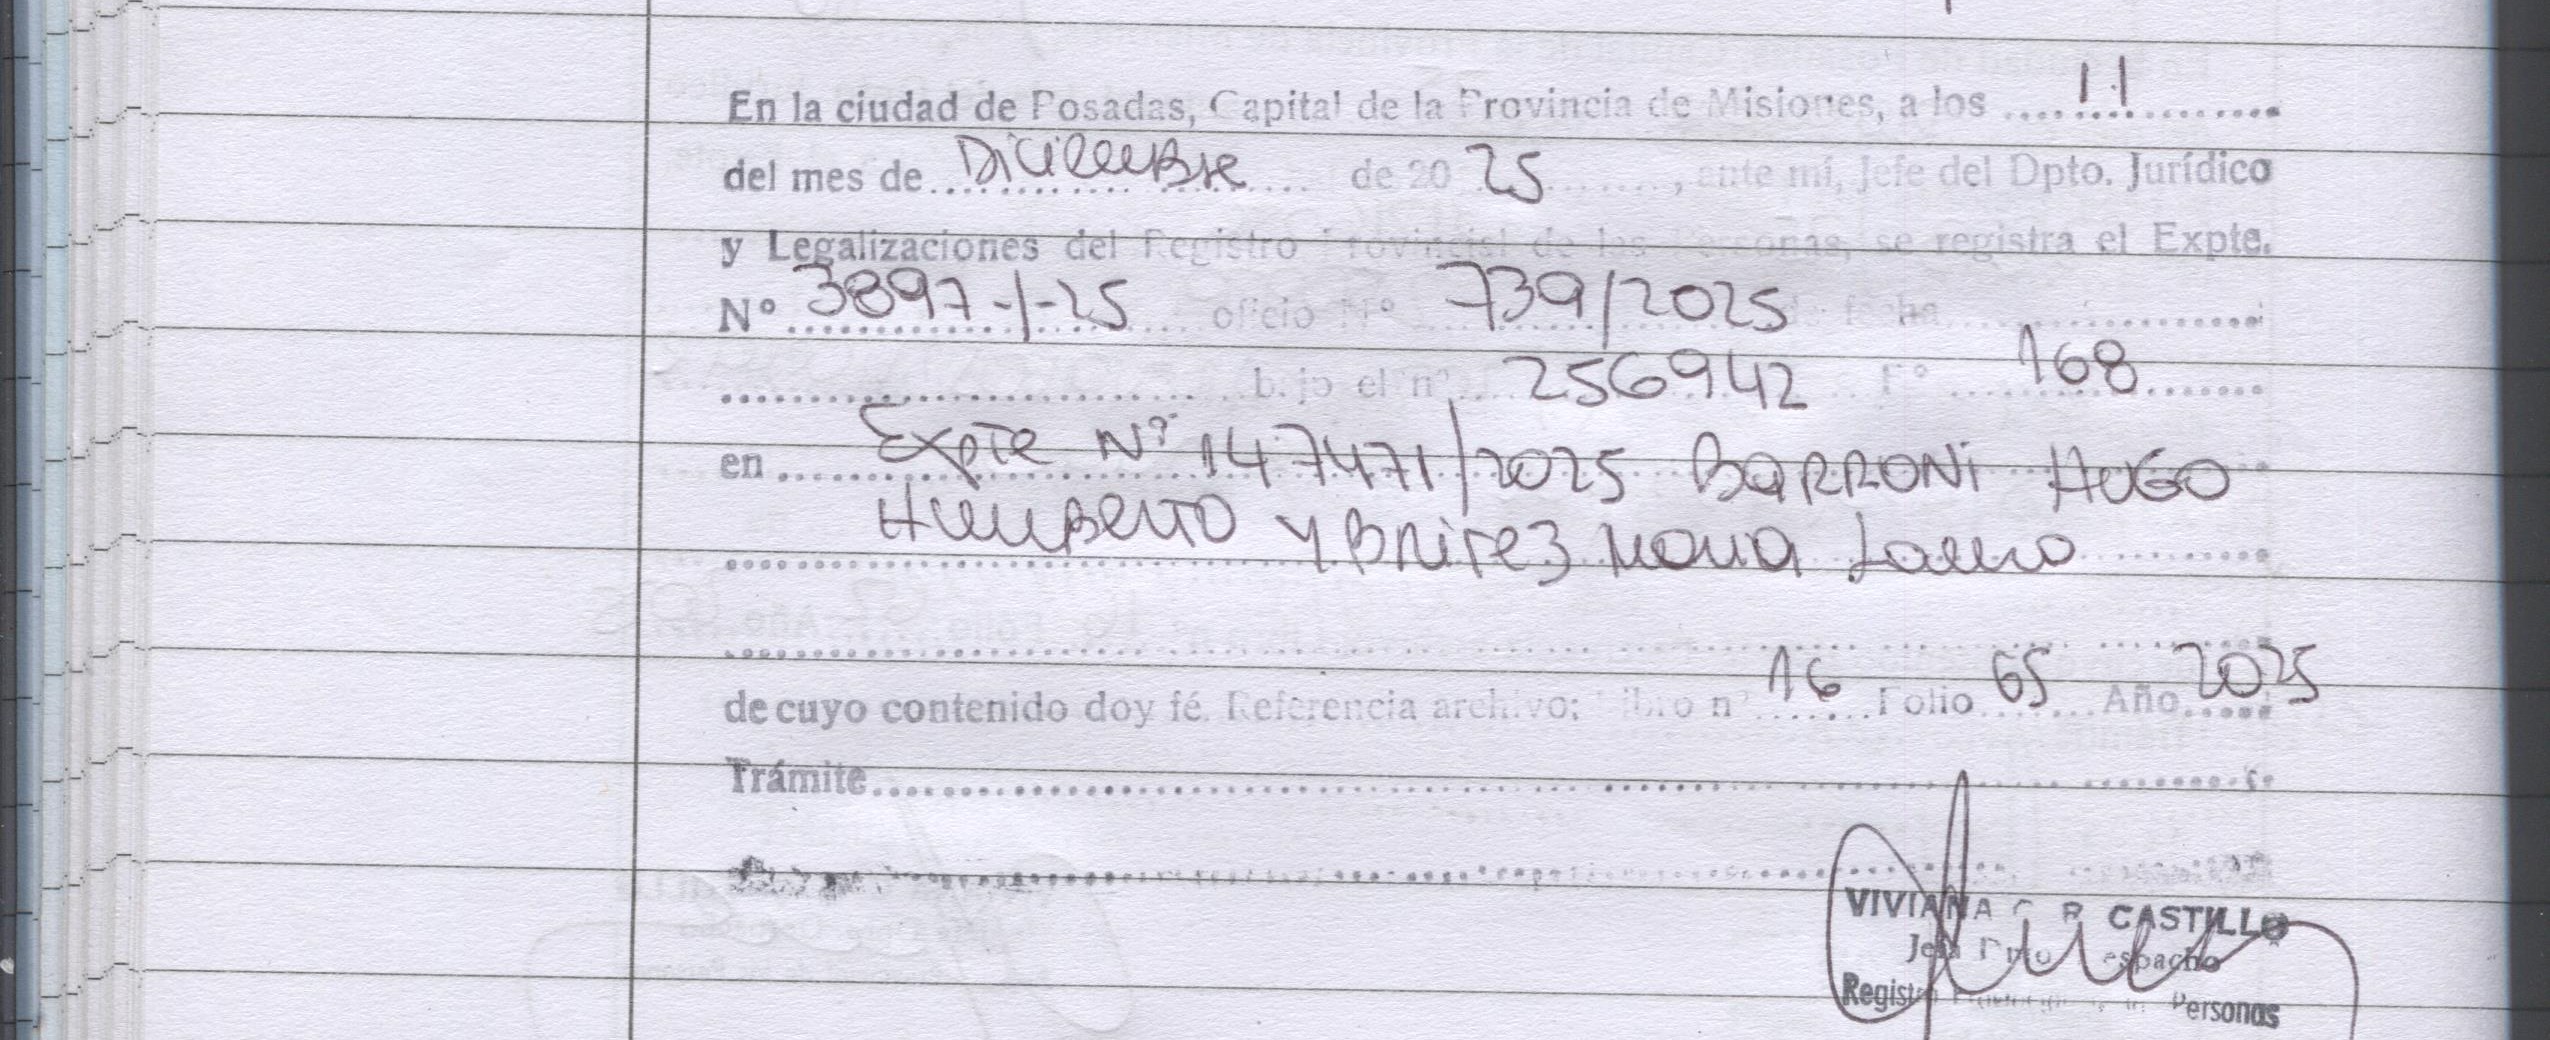 En la ciudad de Posadas, Capital de la Provincia de Misiones, a los ....11....
del mes de Diciembre de 2025, ante mí, Jefe del Dpto. Jurídico
y Legalizaciones del Registro Provincial de las Personas, se registra el Expte.
Nº 3897-1-25 oficio Nº 739/2025 de fecha
bajo el nº 256942 Fº 168
en Expte Nº 147471/2025 BARRONI HUGO
HUMBERTO Y BRITEZ MARIA
de cuyo contenido doy fé. Referencia archivo: Libro nº 16 Folio 65 Año 2025
Trámite
VIVIANA CASTILLO
Personas